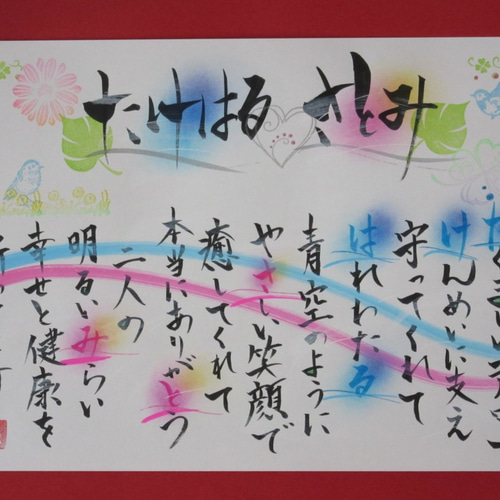 たけはる さとみ
けんめいに支え
守ってくれて
はれわたる
青空のように
やさしい笑顔で
癒してくれて
本当にありがとう
二人の
明るいみらい
幸せと健康を